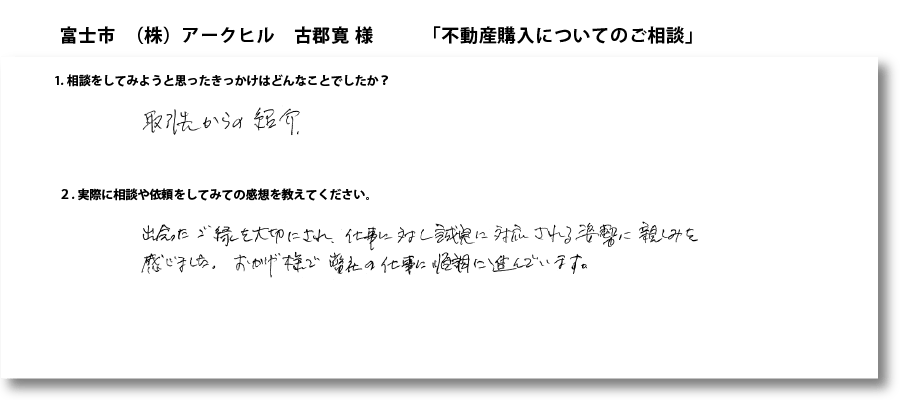 富士市　（株）アークヒル　古郡寛 様　　「不動産購入についてのご相談」
1. 相談をしてみようと思ったきっかけはどんなことでしたか？
取引先からの紹介.
2. 実際に相談や依頼をしてみての感想を教えてください。
出会ったご縁を大切にされ、仕事に対し誠実に対応される姿勢に親しみを
感じました。おかげ様で弊社の仕事に順調に進んでいます。